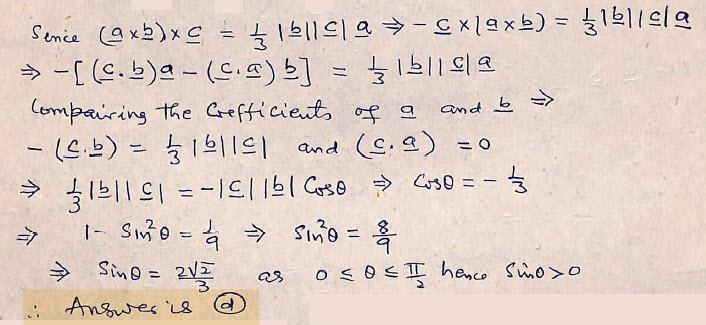 Sence (a×b)×c = 1/3 |b||c| a ⇒ - c×(a×b) = 1/3 |b||c| a
⇒ -[(c.b)a - (c.a)b] = 1/3 |b||c| a
Compairing the Coefficients of a and b ⇒
- (c.b) = 1/3 |b||c| and (c.a) = 0
⇒ 1/3 |b||c| = -|c||b| Cosθ ⇒ Cosθ = - 1/3
⇒ 1 - Sin²θ = 1/9 ⇒ Sin²θ = 8/9
⇒ Sinθ = 2√2/3 as 0 ≤ θ ≤ π/2 hence Sinθ>0
∴ Answer is (d)